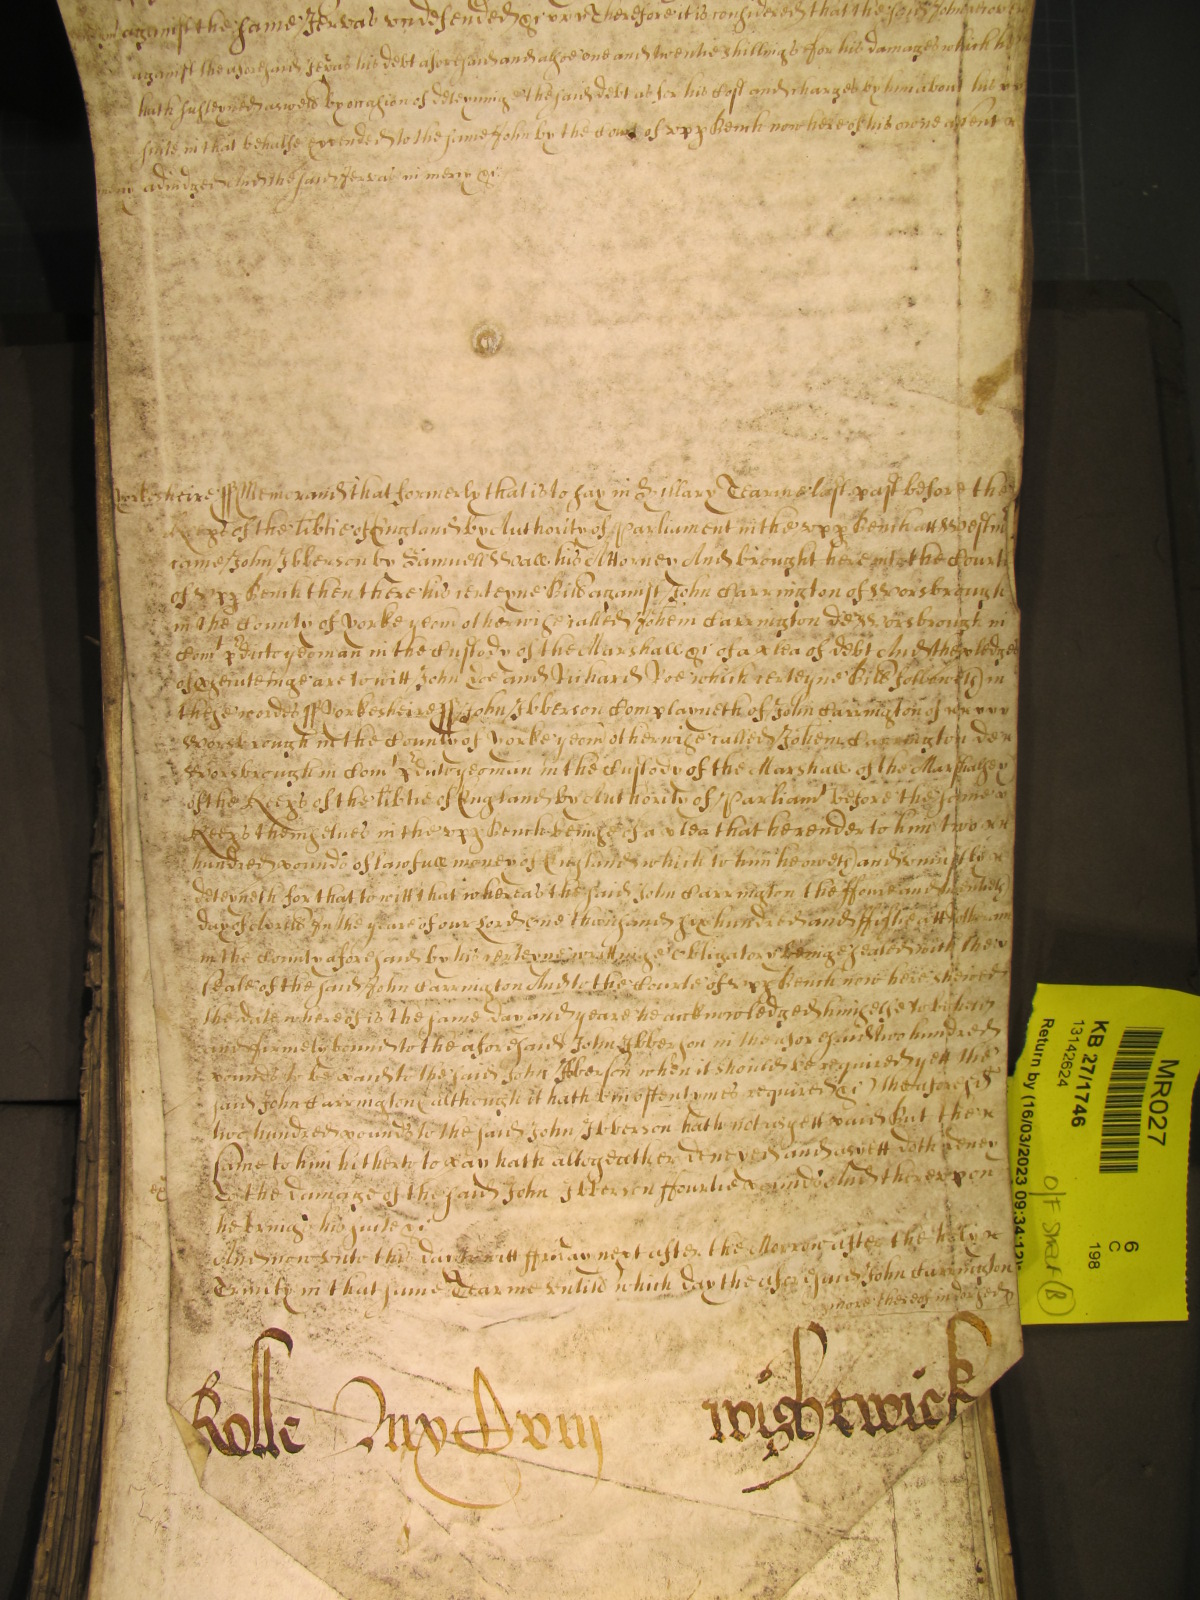 against the same Jervas undefended &c Therefore it is considered that the said John recover
against the aforesaid Jervas his debt aforesaid and alsoe one and twentie shillings for his damages which he
hath susteyned aswell by occasion of deteyning the said debt as for his Cost and charges by him about his
suite in that behalfe expended to the same John by the Court of vpp Bench now here of his owne assent
adiudged And the said Jervas in mercy &c
Yorkesheire ss Memorand that formerly that is to say in Hillary Tearme last past before the
Keeps of the libtie of England by Authority of Parliament in the vpp Bench att Westm
came John Ibberson by Samuell Wall his Attorney And brought here into the Court
of vpp Bench then there his certeyne Bill against John Carrington of Worsbrough
in the County of Yorke yeom otherwise called Johem Carrington de Worsbrough in
Com pdict yeoman in the Custody of the Marshall &c of a plea of debt And the pledges
of prosecuteinge are to witt John Doe and Richard Roe which certeyne Bill followeth in
these wordes ss Yorkesheire ss John Ibberson Complayneth of John Carrington of
Worsbrough in the County of Yorke yeom otherwise called Johem Carrington de
Worsbrough in Com pdict yeoman in the Custody of the Marshall of the Marshallsey
of the Keeps of the libtie of England by Authority of Parliamt before the same
Keeps themselues in the vpp Bench beinge of a plea that he render to him two
hundred pounds of lawfull money of England which to him he oweth and vniustly
deteyneth for that to witt that whereas the said John Carrington the ffoure and twentieth
day of Aprill In the yeare of our Lord One thousand six hundred and ffiftie att
in the County aforesaid by his certeyne writtinge Obligatory beinge sealed with the
seale of the said John Carrington And to the Courte of vpp Bench now here shewed
the date whereof is the same day and yeare he acknowledged himselfe to be held
and firmely bound to the aforesaid John Ibberson in the aforesaid two hundred
pounds to be paid to the said John Ibberson when it should be required yett the
said John Carrington (although it hath bin oftentymes required &c) the aforesd
two hundred pounds to the said John Ibberson hath not as yett paid But the
same to him hitherto to pay hath altogeather denyed and as yett doth deney
To the damage of the said John Ibberson ffourtie pounds And thereupon
he brings his suite &c
And now vnto this day to witt ffriday next after the Morrow after the holy
Trinity in that same Tearme vntill which day the aforesaid John Carrington
more thereof indorsed
Rolle Wightwick
MR027
KB 27/1746
13142624
Return by (16/03/2023 09:34:12)
6
C
198
O/F Shelf (B)